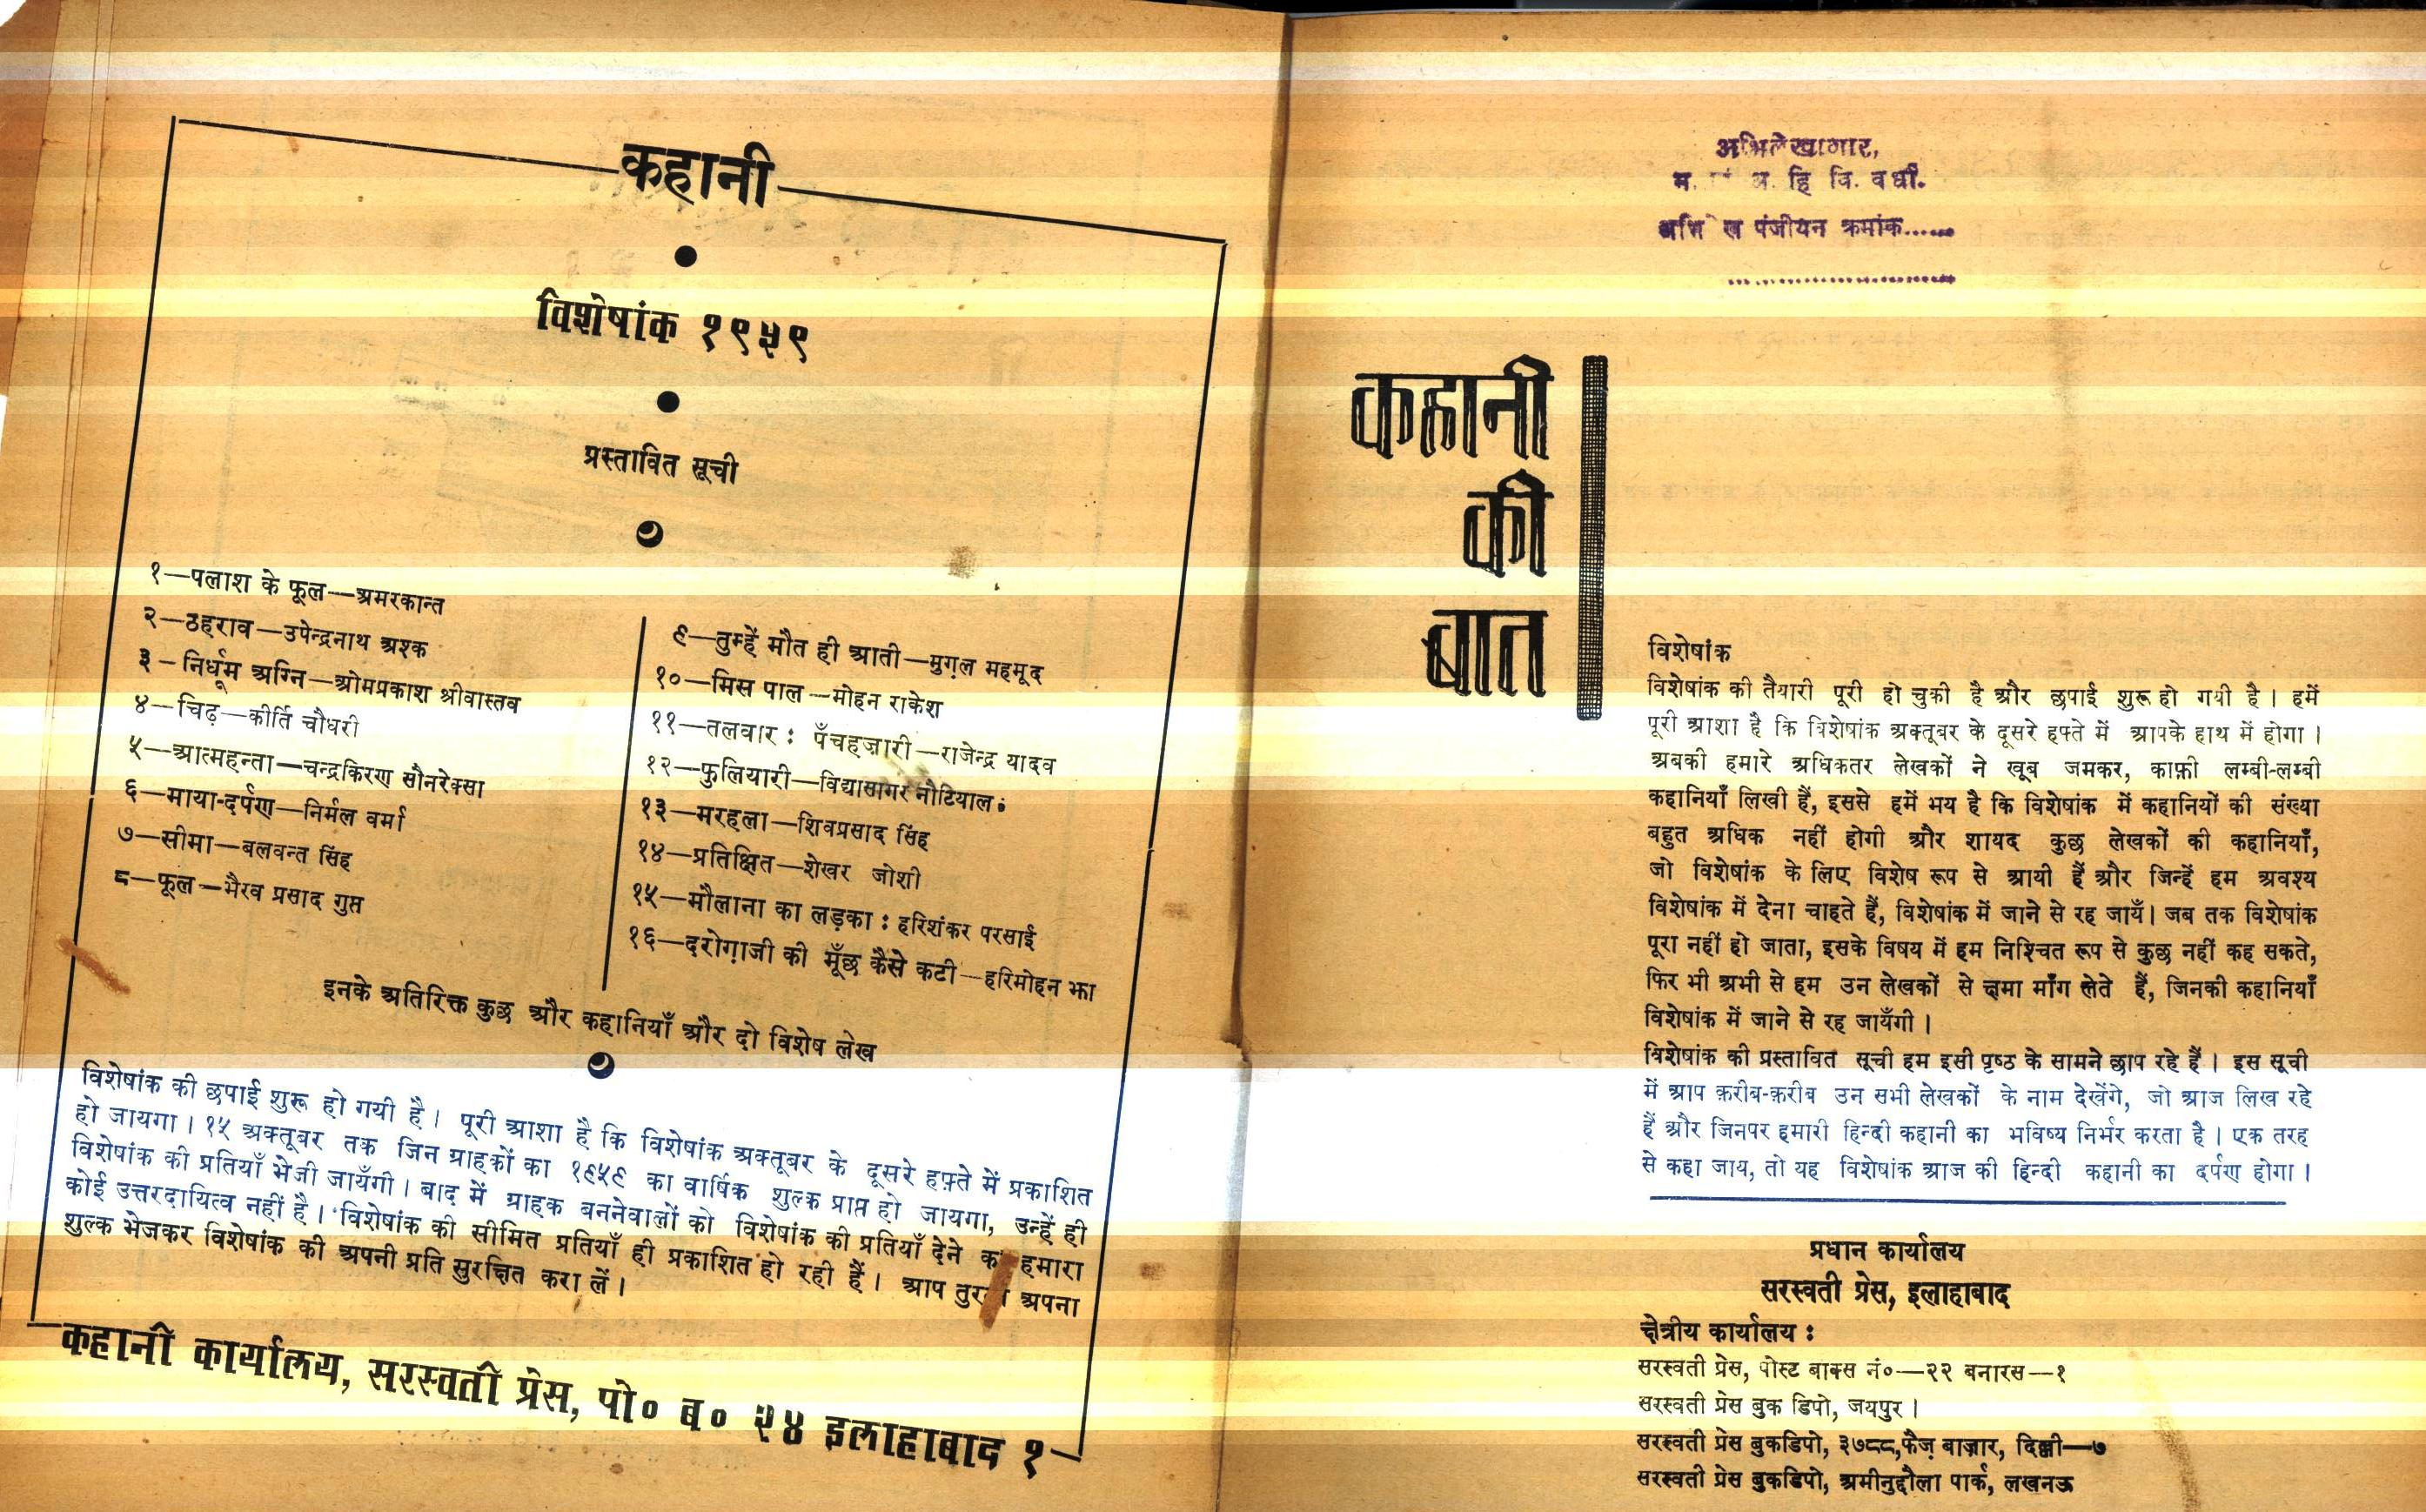 कहानी
विशेषांक १९५९
प्रस्तावित सूची
१—पलाश के फूल—अमरकान्त
२—ठहराव—उपेन्द्रनाथ अश्क
३—निर्धूम अग्नि—ओमप्रकाश श्रीवास्तव
४—चिढ़—कीर्ति चौधरी
५—आत्महन्ता—चन्द्रकिरण सौनरेक्सा
६—माया-दर्पण—निर्मल वर्मा
७—सीमा—बलवन्त सिंह
८—फूल—भैरव प्रसाद गुप्त
९—तुम्हें मौत ही आती—मुग़ल महमूद
१०—मिस पाल—मोहन राकेश
११—तलवार : पँचहज़ारी—राजेन्द्र यादव
१२—फुलियारी—विद्यासागर नौटियाल
१३—मरहला—शिवप्रसाद सिंह
१४—प्रतिक्षित—शेखर जोशी
१५—मौलाना का लड़का : हरिशंकर परसाई
१६—दरोग़ाजी की मूँछ कैसे कटी—हरिमोहन झा
इनके अतिरिक्त कुछ और कहानियाँ और दो विशेष लेख
विशेषांक की छपाई शुरू हो गयी है। पूरी आशा है कि विशेषांक अक्तूबर के दूसरे हफ़्ते में प्रकाशित
हो जायगा। १५ अक्तूबर तक जिन ग्राहकों का १९५९ का वार्षिक शुल्क प्राप्त हो जायगा, उन्हें ही
विशेषांक की प्रतियाँ भेजी जायँगी। बाद में ग्राहक बननेवालों को विशेषांक की प्रतियाँ देने का हमारा
कोई उत्तरदायित्व नहीं है। विशेषांक की सीमित प्रतियाँ ही प्रकाशित हो रही हैं। आप तुरन्त अपना
शुल्क भेजकर विशेषांक की अपनी प्रति सुरक्षित करा लें।
कहानी कार्यालय, सरस्वती प्रेस, पो० ब० २४ इलाहाबाद १
अभिलेखागार,
म. अ. हि वि. वर्धा.
पंजीयन क्रमांक......
कहानी
की
बात
विशेषांक
विशेषांक की तैयारी पूरी हो चुकी है और छपाई शुरू हो गयी है। हमें
पूरी आशा है कि विशेषांक अक्तूबर के दूसरे हफ्ते में आपके हाथ में होगा।
अबकी हमारे अधिकतर लेखकों ने खूब जमकर, काफ़ी लम्बी-लम्बी
कहानियाँ लिखी हैं, इससे हमें भय है कि विशेषांक में कहानियों की संख्या
बहुत अधिक नहीं होगी और शायद कुछ लेखकों की कहानियाँ,
जो विशेषांक के लिए विशेष रूप से आयी हैं और जिन्हें हम अवश्य
विशेषांक में देना चाहते हैं, विशेषांक में जाने से रह जायँ। जब तक विशेषांक
पूरा नहीं हो जाता, इसके विषय में हम निश्चित रूप से कुछ नहीं कह सकते,
फिर भी अभी से हम उन लेखकों से क्षमा माँग लेते हैं, जिनकी कहानियाँ
विशेषांक में जाने से रह जायँगी।
विशेषांक की प्रस्तावित सूची हम इसी पृष्ठ के सामने छाप रहे हैं। इस सूची
में आप क़रीब-क़रीब उन सभी लेखकों के नाम देखेंगे, जो आज लिख रहे
हैं और जिनपर हमारी हिन्दी कहानी का भविष्य निर्भर करता है। एक तरह
से कहा जाय, तो यह विशेषांक आज की हिन्दी कहानी का दर्पण होगा।
प्रधान कार्यालय
सरस्वती प्रेस, इलाहाबाद
क्षेत्रीय कार्यालय :
सरस्वती प्रेस, पोस्ट बाक्स नं०—२२ बनारस—१
सरस्वती प्रेस बुक डिपो, जयपुर।
सरस्वती प्रेस बुकडिपो, ३७८८,फैज़ बाज़ार, दिल्ली—७
सरस्वती प्रेस बुकडिपो, अमीनुद्दौला पार्क, लखनऊ